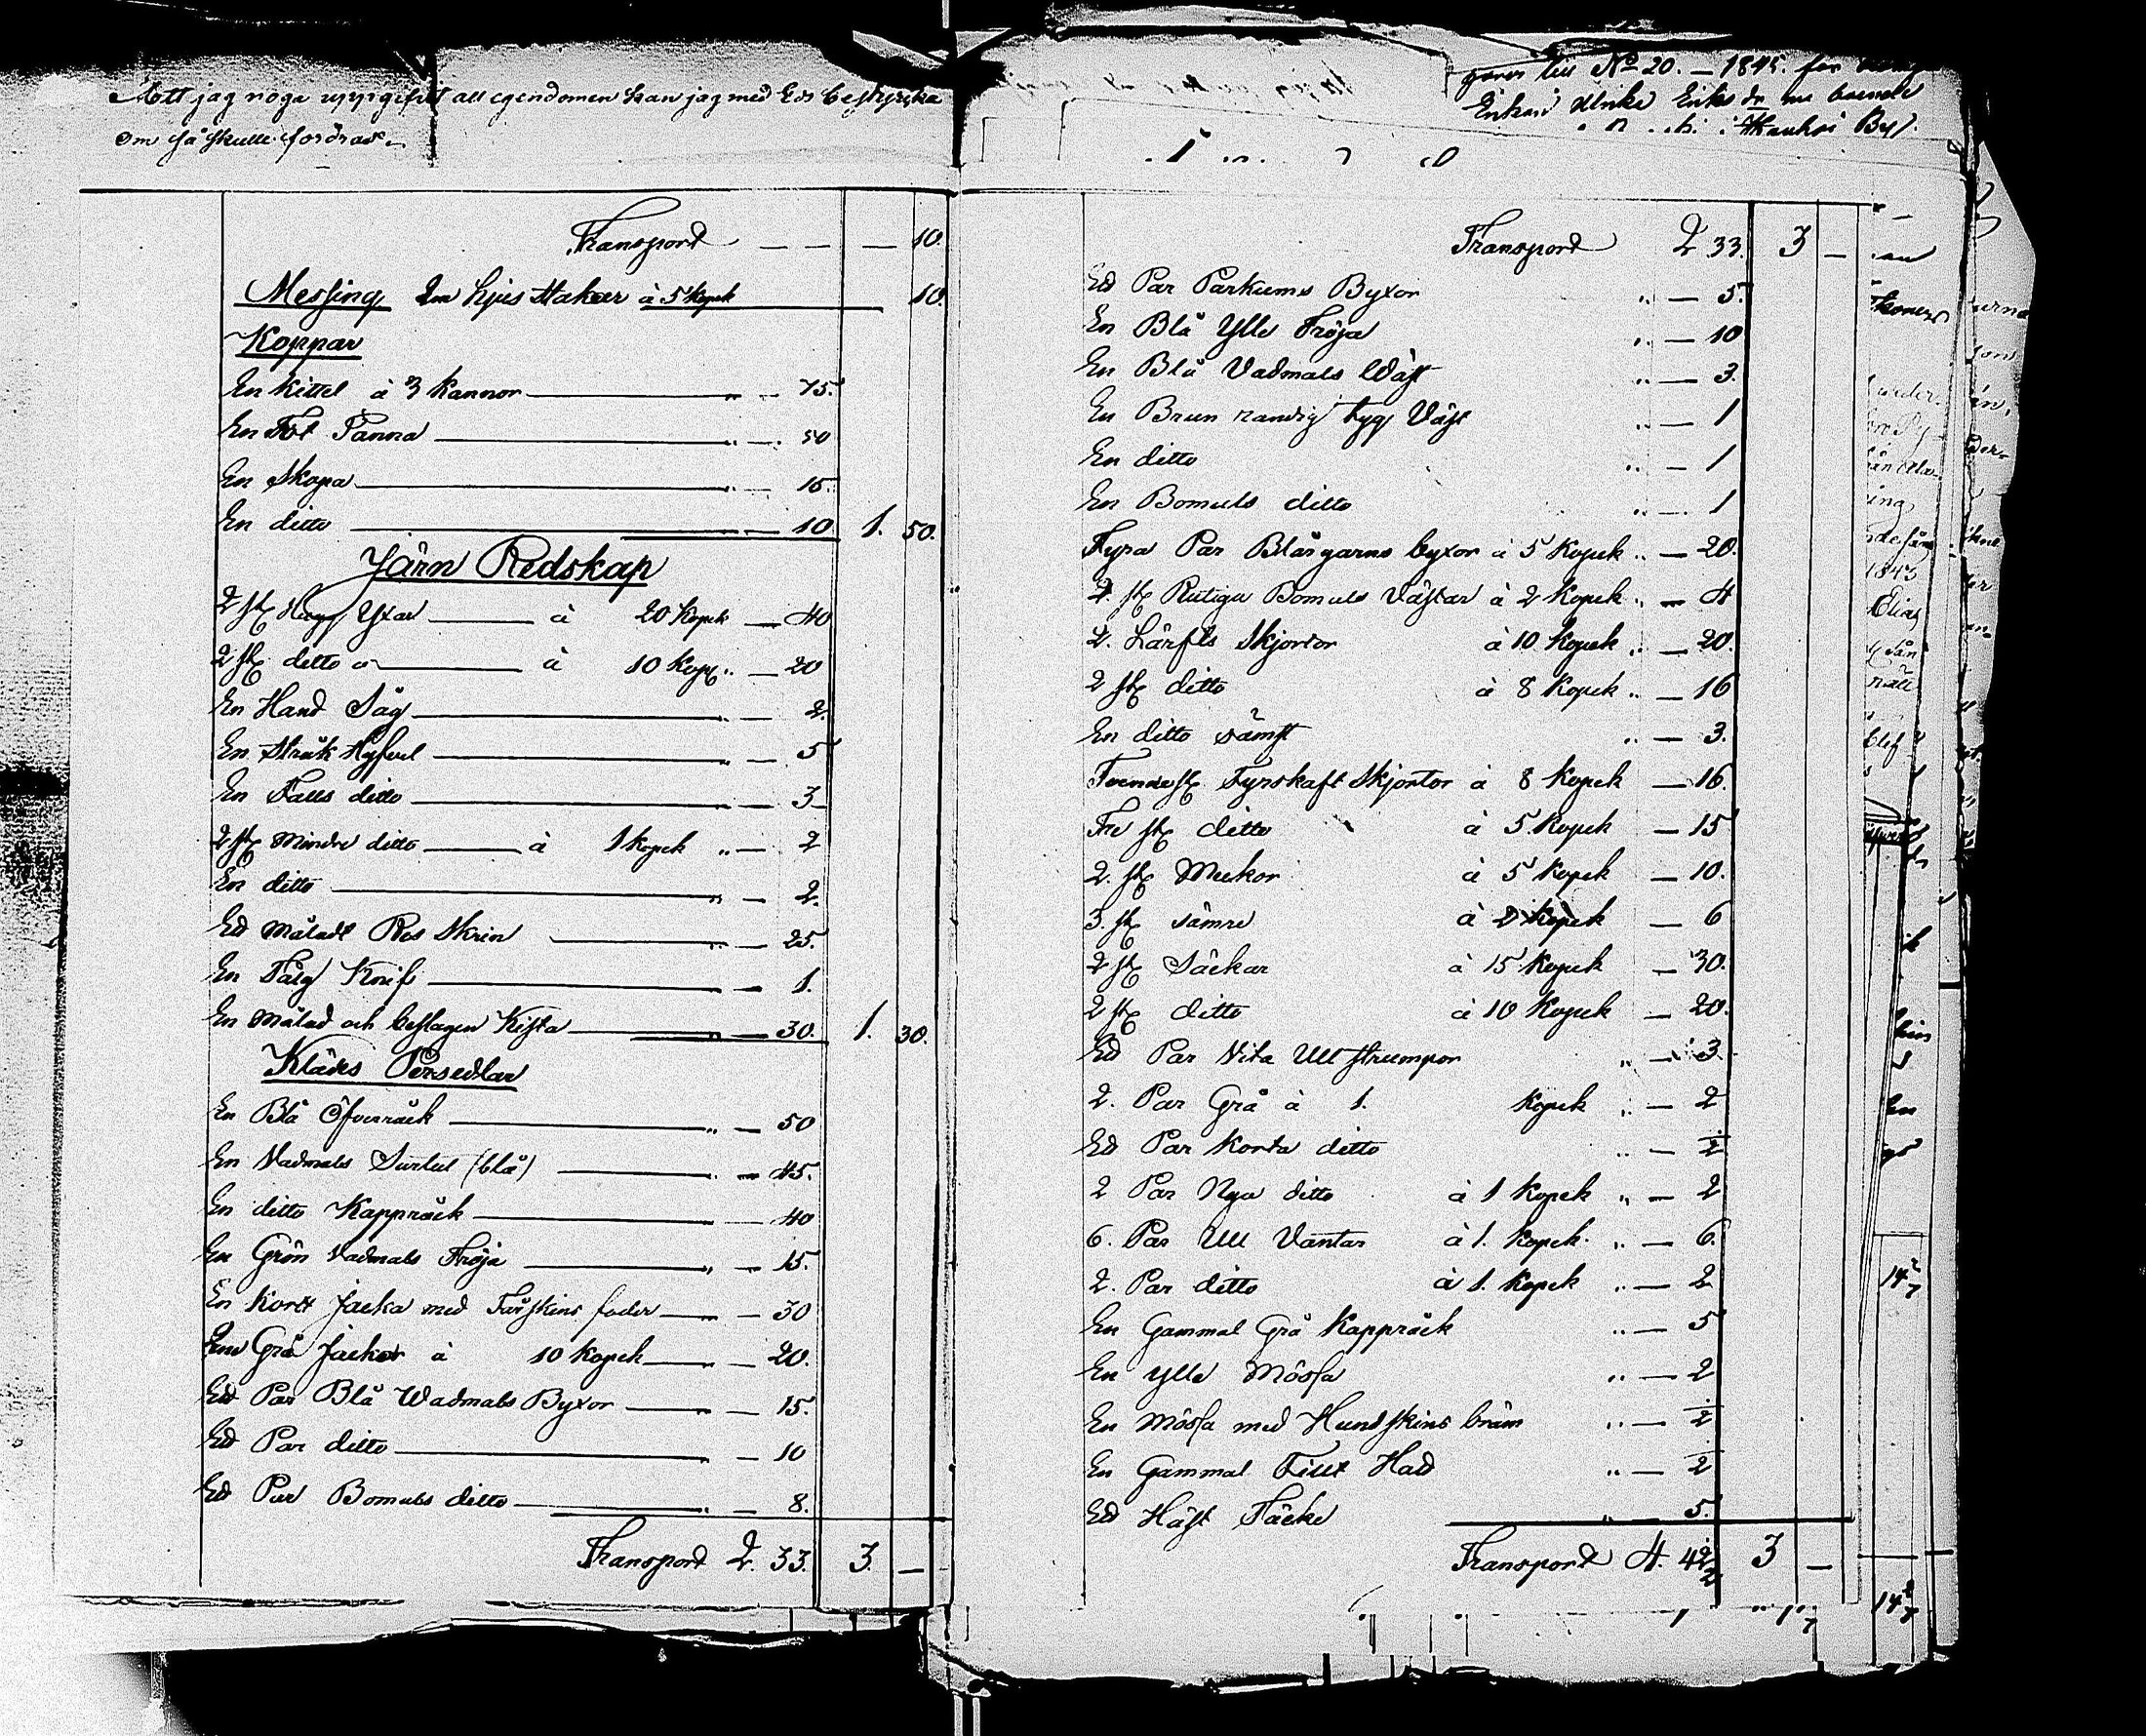 Att jag noga uppgifvit all egendomen kan jag med Ed bestyrcka
om så skulle fordras.
Transport — — — 10.
Messing Två ljus stakar à 5 Kopek 10.
Koppar
En kittel à 3 kannor „ — 75.
En Fot Panna „ — 50
En Skopa „ — 15.
En ditto — 10 1. 50.
Järn Redskap
2 st Hugg Yxar à 20 Kopek — 40
2 st ditto à 10 Kop „ — 20
En Hand Såg „ — 2.
En Stråk Hyfvel „ — 5
En Falls ditto „ — 3
2 st Mindre ditto à 1 Kopek „ — 2
En ditto „ — 2.
Ed Måladt Res Skrin „ — 25.
En Tälg Knif „ — 1.
En Målad och beslagen Kista „ — 30. 1. 30.
Klädes Persedlar
En Blå Öfverråck „ — 50
En Vadmals Surtut (blå) „ — 45.
En ditto Kappråck — 40
En Grön Vadmals Tröja „ — 15.
En Kort Jacka med Fårskins foder — 30
Grå Jackor à 10 Kopek — 20.
Ed Par Blå Wadmals Byxor „ — 15.
Ed Par ditto „ — 10
Ed Par Bomuls ditto „ — 8.
Transport 2. 33. 3. —
till No 20. — 1845. för
Enkan Ulrika Eriks dr
By.
Transport 2 33. 3 —
Ed Par Parkums Byxor „ — 5.
En Blå Ylle Tröja „ — 10
En Blå Vadmals Wäst „ — 3.
En Brun randig tyg Väst „ — 1
En ditto „ — 1
En Bomuls ditto „ — 1
Fyra Par Blårgarns byxor à 5 Kopek „ — 20.
2. st Rutiga Bomuls Västar à 2 Kopek „ — 4
2. Lärfts Skjortor à 10 Kopek „ — 20.
2 st ditto à 8 Kopek „ — 16
En ditto sämst „ — 3.
Tvenne st Fyrskaft Skjortor à 8 Kopek — 16.
Tre st ditto à 5 Kopek — 15
2. st Meckor à 5 Kopek — 10.
3. st sämre à 2 Kopek — 6
2 st Säckar à 15 Kopek — 30.
2 st ditto à 10 Kopek — 20.
Ed Par Vita Ull strumpor „ — 3
2. Par Grå à 1. Kopek „ — 2
Ed Par Korta ditto „ — ½
2 Par Nya ditto à 1 Kopek „ — 2
6. Par Ull Vantar à 1. Kopek „ — 6.
2. Par ditto à 1. Kopek „ — 2
En Gammal Grå Kappråck „ — 5
En Ylle Mössa „ — 2
En Mössa med Hundskins bräm „ — ½
En Gammal Filt Hatt „ — ½
Ed Häst Täcke „ — 5.
Transport 4. 42½ 3 —